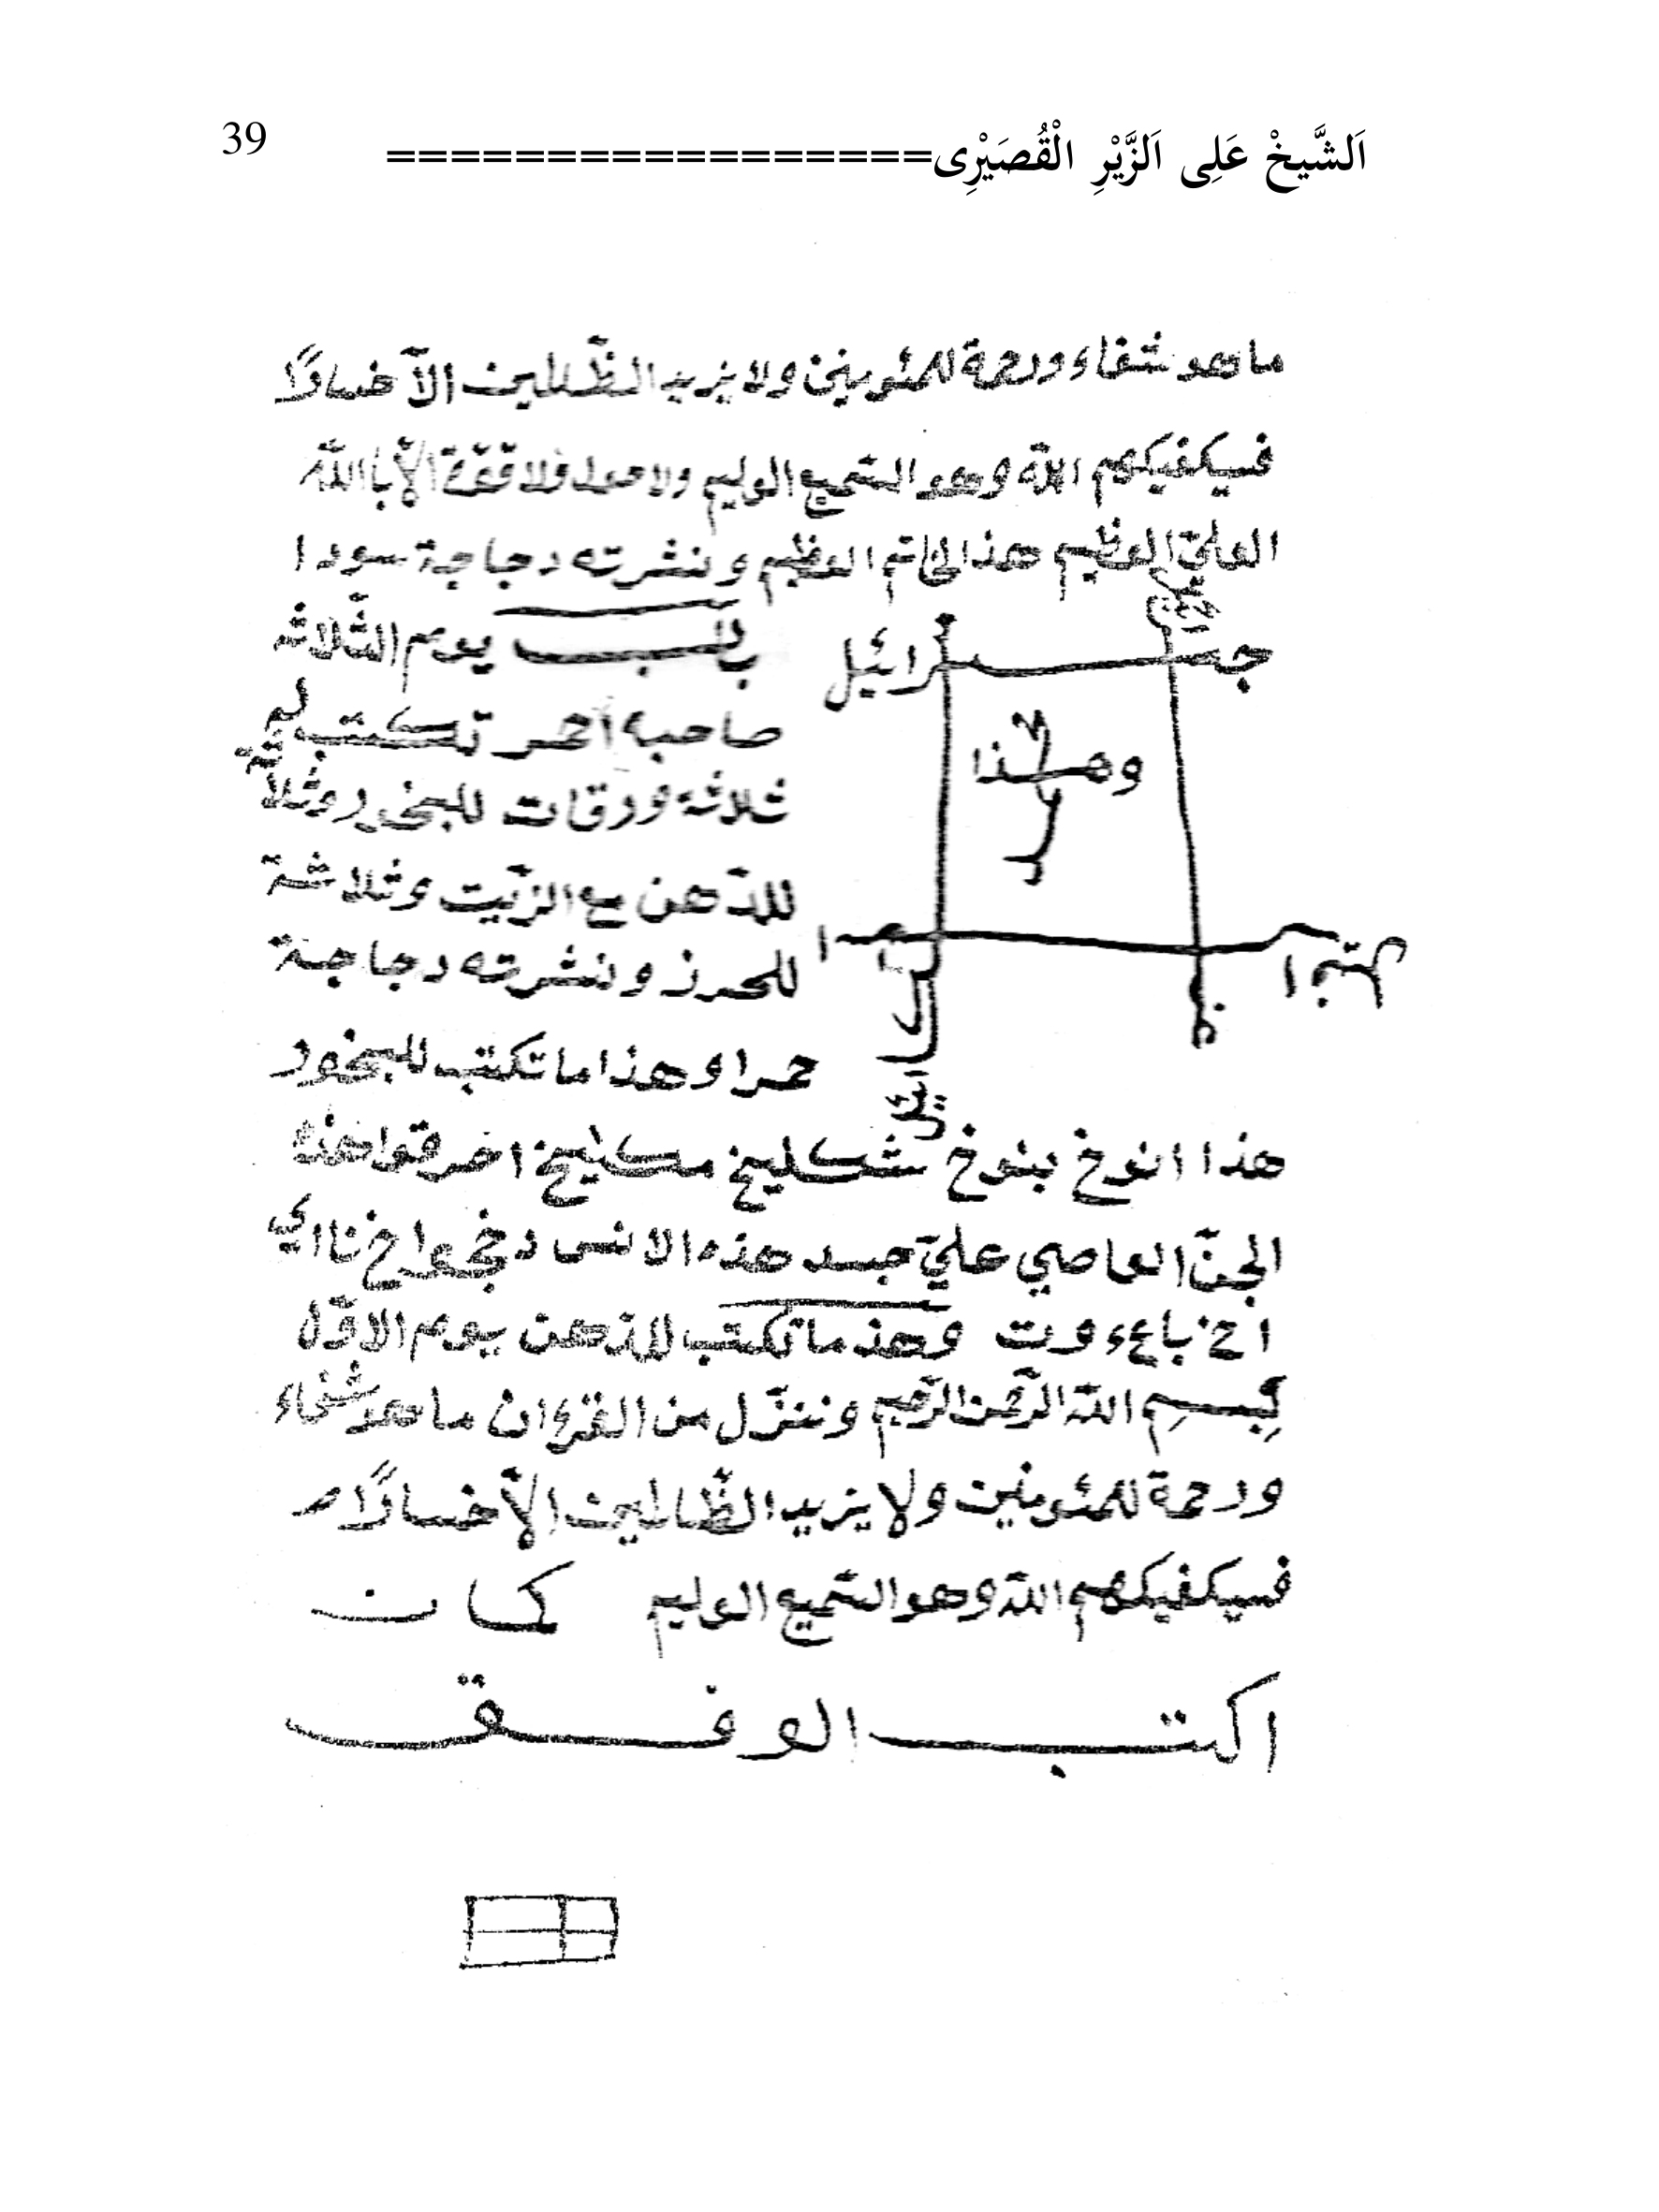 اَلشَّيخْ عَلِى اَلزَّيْرِ الْقُصَيْرِى================= 39
ما هو شفاء ورحمة للمئومنين ولا يزيد الظّلمين الآ خسارًا
فسيكفيكهم اللّه وهو السّميع العليم ولا حول ولا قوّة الاّ باللّه
العليّ العظيم هذا الخاتم العظيم ونشرته دجاجة سودا
جبــرائيل
يوم الثّلاثه
صاحبه احمر تكتب
وهذا
ثلاثة ورقات للبخور
للدّهن مع الزّيت وثلاثة
للحرز ونشرته دجاجة
حمرا وهذا ما تكتب للبخور
هذا انوخ بنوخ شكليخ مكليخ احرقوا هذه
الجنّ العاصي عليّ جسد هذه الانس
وهذ ما تكتب للدهن يوم الاوّل
بِسمِ اللّه الرّحمن الرّحيم وننزّل من القرءان ما هو شفاء
ورحمة للمئومنين ولا يزيد الظّالمين الاّ خسارًا
فسيكفيكهم اللّه وهو السّميع العليم كمان
اكتب الوفق